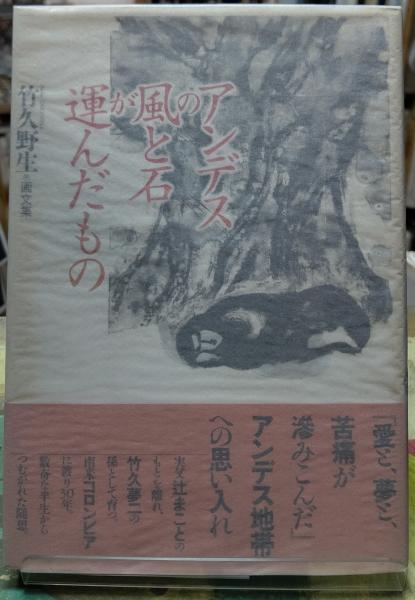 アンデスの
風と石が
運んだもの
竹久野生
画文集
「愛と、夢と、
苦痛が
滲みこんだ」
アンデス地帯
への思い入れ
実父辻まことの
もとを離れ、
竹久夢二の
孫として育つ。
南米コロンビア
に渡り30年、
数奇な半生から
つむがれた随想。